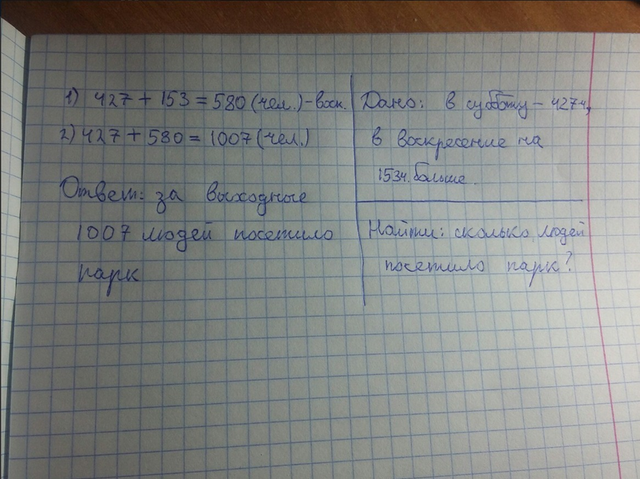 1) 427 + 153 = 580 (чел.) - воск.
2) 427 + 580 = 1007 (чел.)
Ответ: за выходные
1007 людей посетило
парк
Дано: в субботу - 427ч,
в воскресение на
153ч. больше.
Найти: сколько людей
посетило парк?